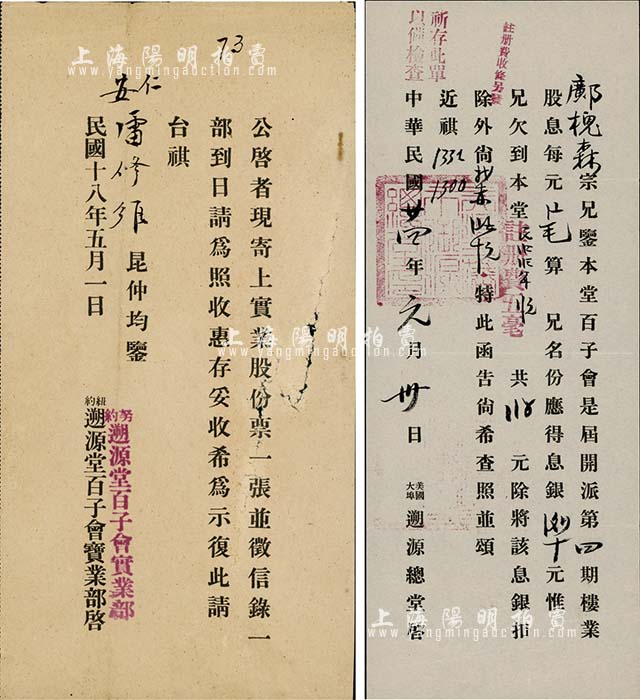 73
公啓者現寄上實業股份票一張並徵信錄一
部到日請爲照收惠存妥收希爲示復此請
台祺
仁
雷修
昆仲均鑒
民國十八年五月一日
紐約遡源堂百子會實業部啓
遡源堂百子會實業部
祈存此單
以備檢查
註册費收條另發
鄺槐森宗兄鑒本堂百子會是屆開派第四期樓業
股息每元
算 兄名份應得息銀
元惟
兄欠到本堂
共
元除將該息銀扣
註册費五毫
除外尙
特此函告尙希查照並頌
近祺
1332
1300
中華民國廿四年元月卅日
美國大埠遡源總堂啓
上海陽明拍賣
www.yangmingauction.com
上海陽明拍賣
www.yangmingauction.com
上海陽明拍賣
www.yangmingauction.com